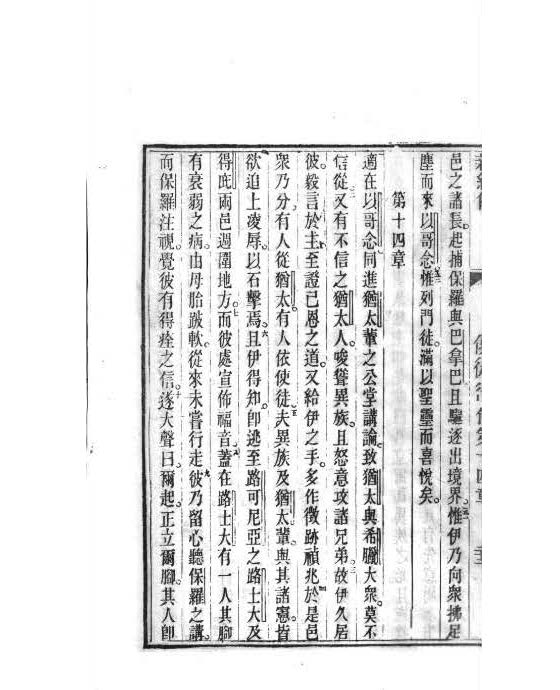 邑之諸長起捕保羅與巴拿巴且驅逐出境界惟伊乃向衆拂足
塵而來以哥念惟列門徒滿以聖靈而喜悅矣
第十四章
適在以哥念同進猶太輩之公堂講論致猶太與希臘大衆莫不
信從又有不信之猶太人唆聳異族且怒意攻諸兄弟故伊久居
彼毅言於主至證已恩之道又給伊之手多作徵跡禎兆於是邑
衆乃分有人從猶太有人依使徒夫異族及猶太輩與其諸憲皆
欲迫上凌辱以石擊焉且伊得知卽逃至路可尼亞之路士大及
得庇兩邑週圍地方而彼處宣佈福音蓋在路士大有一人其腳
有衰弱之病由母胎跛軟從來未嘗行走彼乃留心聽保羅之講
而保羅注視覺彼有得痊之信遂大聲曰爾起正立爾腳其人卽